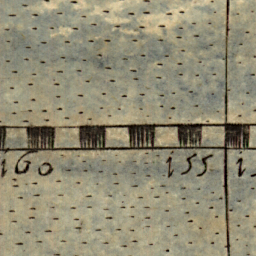 160 155